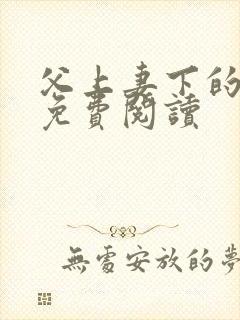 父上妻下的
免費閱讀
無處安放的夢